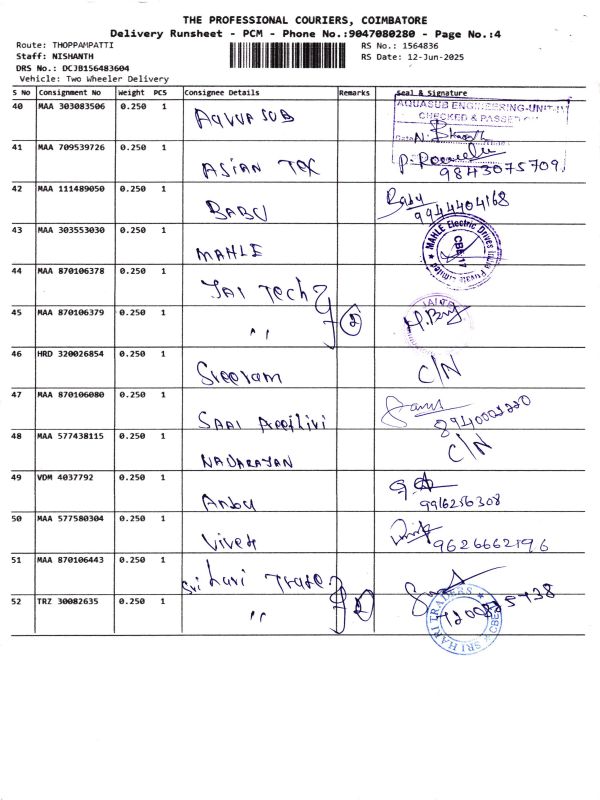 THE PROFESSIONAL COURIERS, COIMBATORE
Delivery Runsheet - PCM - Phone No.:9047080280 - Page No.:4
Route: THOPPAMPATTI RS No.: 1564836
Staff: NISHANTH RS Date: 12-Jun-2025
DRS No.: DCJB156483604
Vehicle: Two Wheeler Delivery
S No Consignment No Weight PCS Consignee Details Remarks Seal & Signature
40 MAA 303083506 0.250 1 AQUA SUB
AQUASUB ENGINEERING-UNIT-IV
CHECKED & PASSED
41 MAA 709539726 0.250 1 ASIAN TEX
9843075709
42 MAA 111489050 0.250 1 BABU Babu
9944404168
43 MAA 303553030 0.250 1 MAHLE
MAHLE Electric Drives India Private Limited
CBE
44 MAA 870106378 0.250 1 JAI Tech
45 MAA 870106379 0.250 1 " 2
46 HRD 320026854 0.250 1 Sreeram C/N
47 MAA 870106080 0.250 1 SAAI
48 MAA 577438115 0.250 1 NADARAJAN C/N
49 VDM 4037792 0.250 1 Anbu
9916256308
50 MAA 577580304 0.250 1 Vivek
9626662196
51 MAA 870106443 0.250 1 Sri Hari Trade
52 TRZ 30082635 0.250 1 " 2
SRI HARI TRADERS
CBE